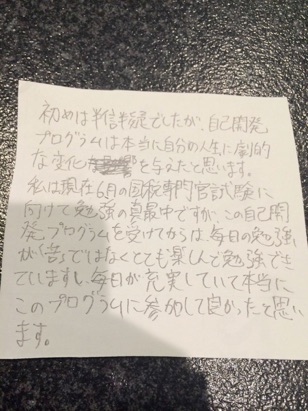 初めは半信半疑でしたが、自己開発
プログラムは本当に自分の人生に劇的
な変化を与えたと思います。
私は現在6月の国税専門官試験に
向けて勉強の真最中ですが、この自己開
発プログラムを受けてからは、毎日の勉強
が「苦」ではなくとても楽しんで勉強できて
いますし、毎日が充実していて本当に
このプログラムに参加して良かったと思い
ます。